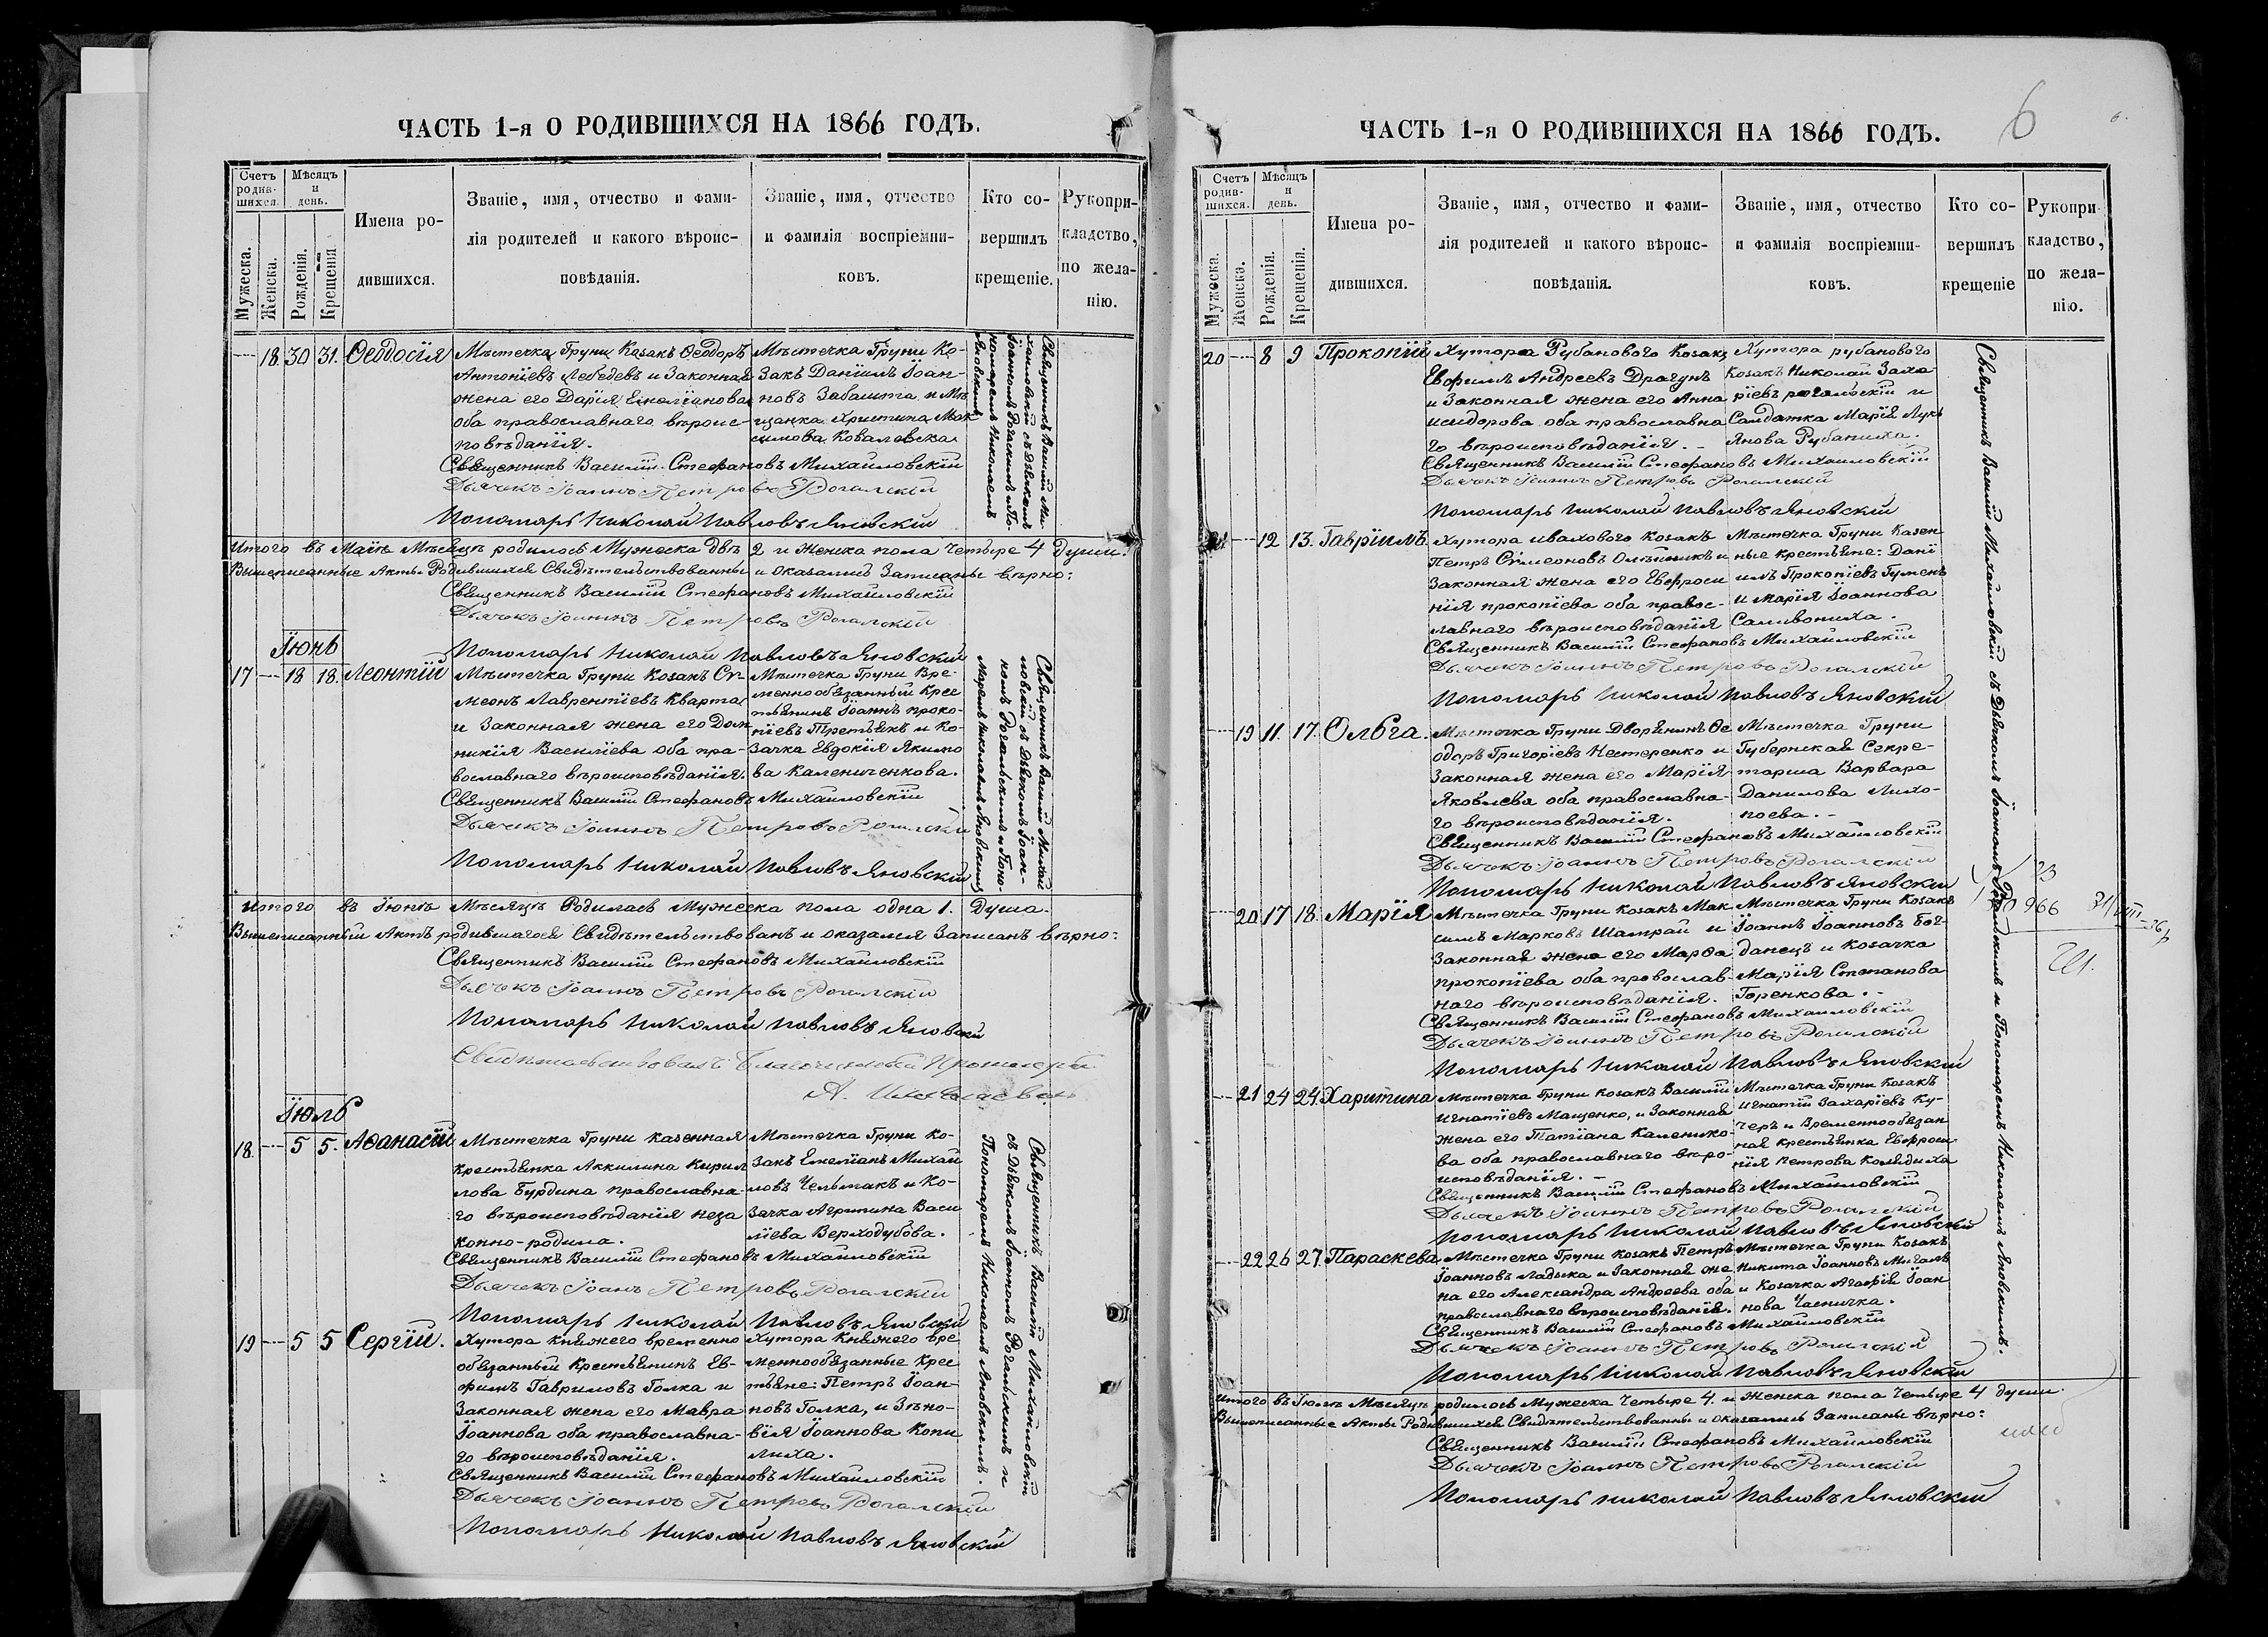 ЧАСТЬ 1-я О РОДИВШИХСЯ НА 1866 ГОДЪ.
Счетъ родив-шихся.
Мѣсяцъ и день.
Мужеска.
Женска.
Рожденія.
Крещенія.
Имена ро-
дившихся.
Званіе, имя, отчество и фами-
лія родителей и какого вѣроис-
повѣданія.
Званіе, имя, отчество
и фамилія воспріемни-
ковъ.
Кто со-
вершилъ
крещеніе.
Рукопри-
кладство,
по жела-
нію.
18. 30 31. Ѳеодосія
Мѣстечка Груни Козакъ Ѳеодоръ
Антоніевъ Лебедевъ и Законная
жена его Дарія Емеліанова
оба православнаго вѣроис-
повѣданія.
Мѣстечка Груни Ко-
закъ Даніилъ Іоан-
новъ Забашта и Мѣ
щанка Христина Мак
симова Ковалевска
Священникъ Василій Ми-
хайловскій съ дьячкомъ
Іоанномъ Рогальскимъ По-
номаремъ Николаемъ
Яновскимъ
Священникъ Василій Стефановъ Михайловскій
Дьячекъ Іоаннъ Петровъ Рогалскій
Пономарь Николай Павловъ Яновскій
Итого въ Маіѣ Мѣсяцѣ родилось Мужеска двѣ 2 и Женска пола четыре 4 души.
Вышеписанные Акты Родившихся Свидѣтельствованны и оказались Записаны вѣрно:
Священникъ Василій Стефановъ Михайловскій
Дьячекъ Іоаннъ Петровъ Рогалскій
Пономарь Николай Павловъ Яновскій
Іюнь
17 — 18 18. Леонтій
Мѣстечка Груни Козакъ Си-
меонъ Лаврентіевъ Квартал
и Законная жена его Дом
никія Василіева оба пра-
вославнаго вѣроисповѣданія.
Мѣстечка Груни Вре-
меннообязанный Крес
тьянинъ Іоаннъ Проко-
піевъ Третьякъ и Ко-
зачка Евдокія Якимо
ва Камениченкова.
Священникъ Василій Михай
ловскій съ дьячкомъ Іоан-
номъ Рогальскимъ и Поно-
маремъ Николаемъ Яновскимъ
Священникъ Василій Стефановъ Михайловскій
Дьячекъ Іоаннъ Петровъ Рогалскій
Пономарь Николай Павловъ Яновскій
Итого въ Іюнѣ Мѣсяцѣ Родилась Мужеска пола одна 1. Душа.
Вышеписанный Актъ родившагося Свидѣтельствованъ и оказался Записанъ вѣрно:
Священникъ Василій Стефановъ Михайловскій
Дьячекъ Іоаннъ Петровъ Рогалскій
Пономарь Николай Павловъ Яновскій
Свидѣтельствовалъ Благочинный Протоіерей
А.
Іюль
18. — 5 5. Аѳанасій
Мѣстечка Груни казенная
крестьянка Аккилина Кирил
лова Бурдина православна-
го вѣроисповѣданія неза
конно-родила.
Мѣстечка Груни Ко-
закъ Емеліанъ Михаи
ловъ Челымакъ и Ко-
зачка Агрипина Васи
ліева Верходубова.
Священникъ Василій Михайловскій
съ дьячкомъ Іоанномъ Рогальскимъ и
Пономаремъ Николаемъ Яновскимъ.
Священникъ Василій Стефановъ Михайловскій
Дьячекъ Іоанъ Петровъ Рогалскій
Пономарь Николай Павловъ Яновскій
19 — 5 5 Сергій.
Хутора Княжего временно
обязанный Крестьянинъ Ев-
фимъ Гавриловъ Голка и
Законная жена его Мавра
Іоаннова оба православна-
го вѣроисповѣданія.
Хутора Княжего вре
меннообязанные крес
тьяне: Петръ Іоан-
новъ Голка, и Зѣно-
вія Іоаннова Копи
лиха.
Священникъ Василій Стефановъ Михайловскій
Дьячекъ Іоаннъ Петровъ Рогалскій
Пономарь Николай Павловъ Яновскій
6
6.
ЧАСТЬ 1-я О РОДИВШИХСЯ НА 1866 ГОДЪ.
Счетъ родив-шихся.
Мѣсяцъ и день.
Мужеска.
Женска.
Рожденія.
Крещенія.
Имена ро-
дившихся.
Званіе, имя, отчество и фами-
лія родителей и какого вѣроис-
повѣданія.
Званіе, имя, отчество
и фамилія воспріемни-
ковъ.
Кто со-
вершилъ
крещеніе
Рукопри
кладство,
по жела-
нію.
20 — 8 9 Прокопій
Хутора Рубанового Козакъ
Евфимъ Андреевъ Драгунъ
и Законная жена его Анна
исидорова оба православна
го вѣроисповѣданія.
Хутора рубанового
Козакъ Николай Заха
ріевъ рогальскій и
Салдатка Марія Лукь
янова Рубаниха.
Священникъ Василій Михайловскій съ Дьячкомъ Іоанномъ Рогальскимъ и Пономаремъ Николаемъ Яновскимъ.
Священникъ Василій Стефановъ Михайловскій
Дьячекъ Іоаннъ Петровъ Рогалскій
Пономарь Николай Павловъ Яновскій
21 — 12 13. Гавріилъ
Хутора ивахового Козакъ
Петръ Симеоновъ Олѣйникъ и
Законная жена его Евфроси
нія прокопіева оба правос-
лавнаго вѣроисповѣданія
Мѣстечка Груни Казен
ные крестьяне: Дані
илъ Прокопіевъ Гумень
и Марія Іоаннова
Саливониха.
Священникъ Василій Стефановъ Михайловскій
Дьячекъ Іоаннъ Петровъ Рогалскій
Пономарь Николай Павловъ Яновскій
— 19 11. 17. Ольга.
Мѣстечка Груни Дворянинъ Ѳе
одоръ Григоріевъ Нестеренко и
Законная жена его Марія
Яковлева оба православна-
го вѣроисповѣданія.
Мѣстечка Груни
Губернская Секре-
тарша Варвара
Данилова Лихо-
поева.
Священникъ Василій Стефановъ Михайловскій
Дьячекъ Іоаннъ Петровъ Рогалскій
Пономарь Николай Павловъ Яновскій
— 20 17 18. Марія
Мѣстечка Груни Козакъ Мак
симъ Марковъ Шамрай и
Законная жена его Марѳа
прокопіева оба православ-
наго вѣроисповѣданія.
Мѣстечка Груни Козакъ
Іоаннъ Іоанновъ Бог-
данецъ и Козачка
Марія Степанова
Горенкова.
966
Священникъ Василій Стефановъ Михайловскій
Дьячекъ Іоаннъ Петровъ Рогалскій
Пономарь Николай Павловъ Яновскій
— 21 24 24. Харитина
Мѣстечка Груни козакъ Василій
игнатіевъ Мащенко, и Законная
жена его Татіана Каленико-
ва оба православнаго вѣро-
исповѣданія.
Мѣстечка Груни Козакъ
игнатій Захаріевъ Ку-
черъ и Временнообязан
ная крестьянка Евфроси
нія петрова Комядиха
Священникъ Василій Стефановъ Михайловскій
Дьячекъ Іоаннъ Петровъ Рогалскій
Пономарь Николай Павловъ Яновскій
— 22 26 27. Параскева
Мѣстечка Груни козакъ Петръ
Іоанновъ Ладыка и Законная же
на его Александра Андреева оба
православнаго вѣроисповѣданія.
Мѣстечка Груни Козакъ
Никита Іоанновъ Мигаль
и Козачка Агафія Іоан
нова Часничка.
Священникъ Василій Стефановъ Михайловскій
Дьячекъ Іоаннъ Петровъ Рогалскій
Пономарь Николай Павловъ Яновскій
Итого въ Іюлѣ Мѣсяцѣ родилось Мужеска Четыре 4. и Женска пола Четыре 4 души.
Вышеписанные Акты Родившихся Свидѣтельствованны и оказались Записаны вѣрно:
Священникъ Василій Стефановъ Михайловскій
Дьячекъ Іоаннъ Петровъ Рогалскій
Пономарь Николай Павловъ Яновскій